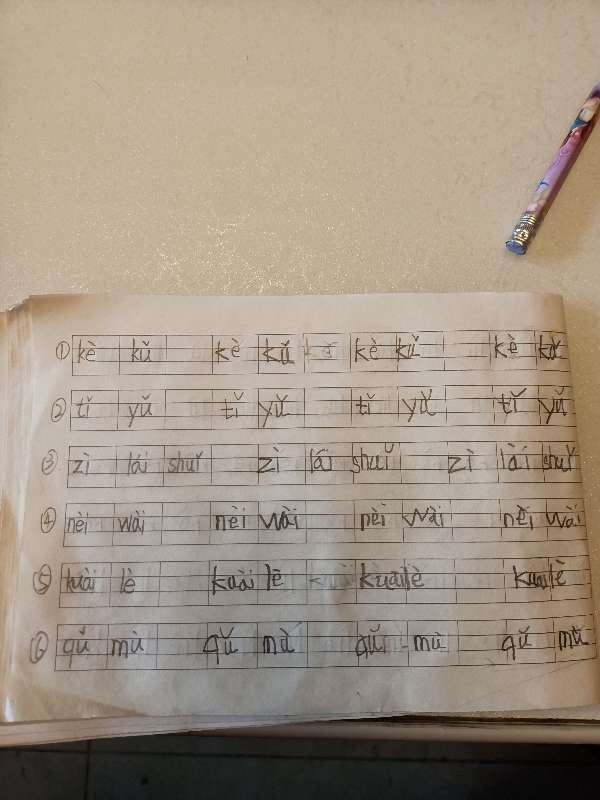 ① kè kǔ kè kǔ kè kǔ kè kǔ
② tǐ yǔ tǐ yǔ tǐ yǔ tǐ yǔ
③ zì lái shuǐ zì lái shuǐ zì lái shuǐ
④ nèi wài nèi wài nèi wài nèi wài
⑤ kuài lè kuài lè kuài lè kuài lè
⑥ qǔ mù qǔ mù qǔ mù qǔ mù